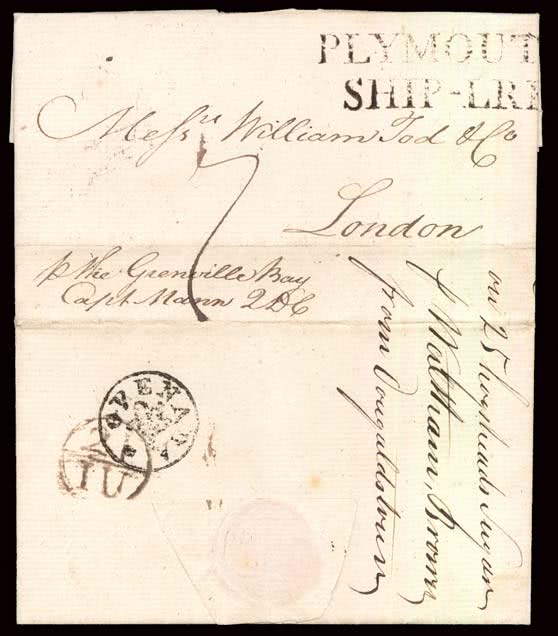 PLYMOUT
SHIP-LRE
Messrs William Tod & Co
London
7
p the Grenville Bay
Capt Mann 2 D C
GRENADA
IU
on 25 hogsheads Sugar
of Waltham, Brown
from Dougaldstown